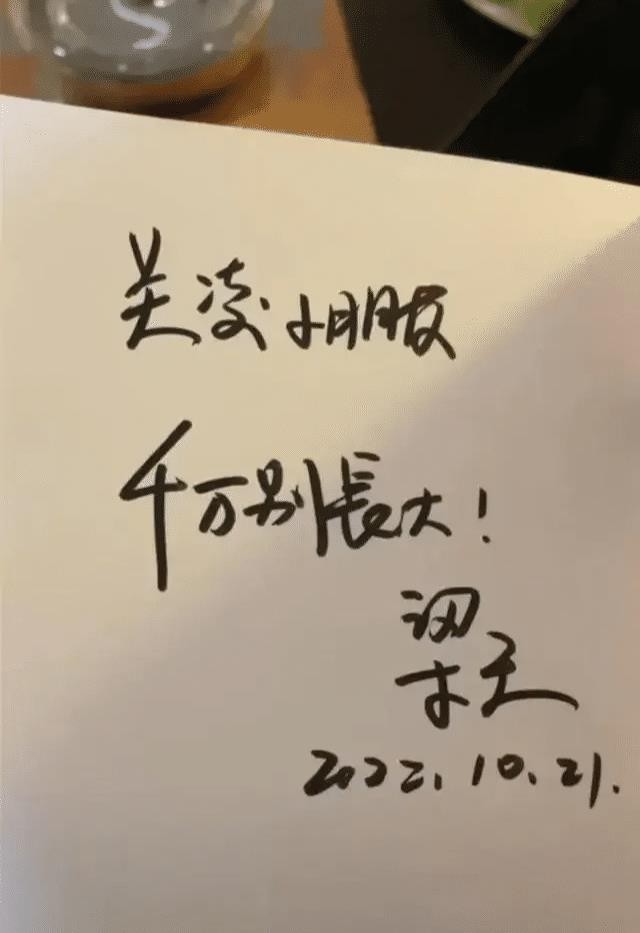 关凌小朋友
千万别長大！
梁天
2022.10.21.